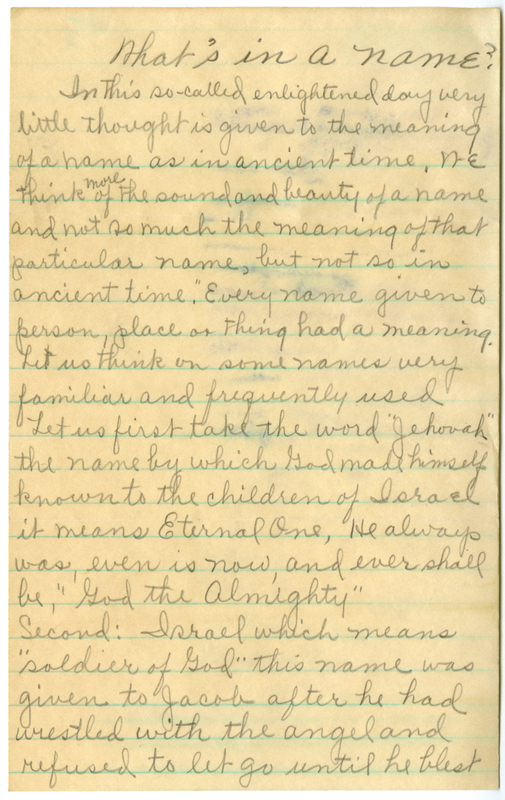 What's in a name?
In this so-called enlightened day very
little thought is given to the meaning
of a name as in ancient time. We
think more of the sound and beauty of a name
and not so much the meaning of that
particular name, but not so in
ancient time." Every name given to
person, place or thing had a meaning.
Let us think on some names very
familiar and frequently used
Let us first take the word "Jehovah"
the name by which God made himself
known to the children of Israel
it means Eternal One, He always
was, even is now, and ever shall
be," God the Almighty"
Second: Israel which means
"soldier of God" this name was
given to Jacob after he had
wrestled with the angel and
refused to let go until he blest